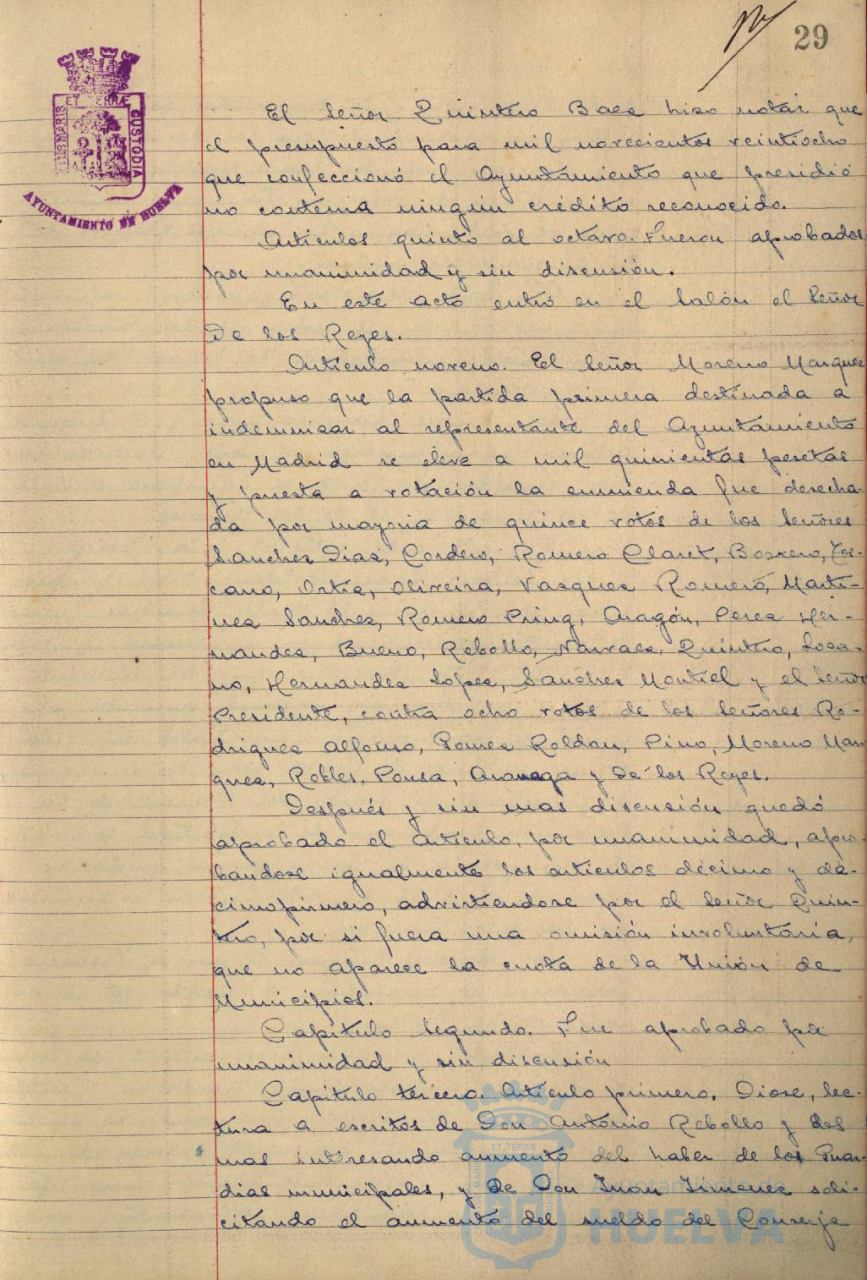 29
PORTUS MARIS ET TERRÆ CUSTODIA
AYUNTAMIENTO DE HUELVA
El Señor Quintero Baez hizo notar que
el presupuesto para mil novecientos veintiocho
que confeccionó el Ayuntamiento que presidió
no contenia ningún crédito reconocido.
Artículos quinto al octavo. Fueron aprobados
por unanimidad y sin discusión.
En este acto entró en el Salón el Señor
De los Reyes.
Artículo noveno. El Señor Moreno Marquez
propuso que la partida primera destinada a
indemnizar al representante del Ayuntamiento
en Madrid se eleve a mil quinientas pesetas
y puesta a votación la enmienda fue desecha-
da por mayoria de quince votos de los Señores
Sanchez Diaz, Cordero, Romero Claret, Borrero, Tos-
cano, Ortiz, Oliveira, Vazquez Romero, Marti-
nez Sanchez, Romero Pring, Aragón, Perez Her-
nandez, Bueno, Rebollo, Narvaez, Quintero, Loza-
no, Hernandez Lopez, Sanchez Montiel y el Señor
Presidente, contra ocho votos de los Señores Ro-
driguez Alfonso, Gomez Roldan, Pino, Moreno Mar-
quez, Robles, Ponsa, y De los Reyes.
Después y sin mas discusión quedó
aprobado el artículo, por unanimidad, apro-
bandose igualmente los artículos décimo y dé-
cimoprimero, advirtiendose por el Señor Quin-
tero, por si fuera una omisión involuntaria,
que no aparece la cuota de la Unión de
Municipios.
Capítulo Segundo. Fue aprobado por
unanimidad y sin discusión
Capítulo tercero. Artículo primero. Diose, lec-
tura a escritos de Don Antonio Rebollo y dos
mas interesando aumento del haber de los Guar-
dias municipales, y de Don Juan Jimenez soli-
citando el aumento del sueldo del Conserje
HUELVA